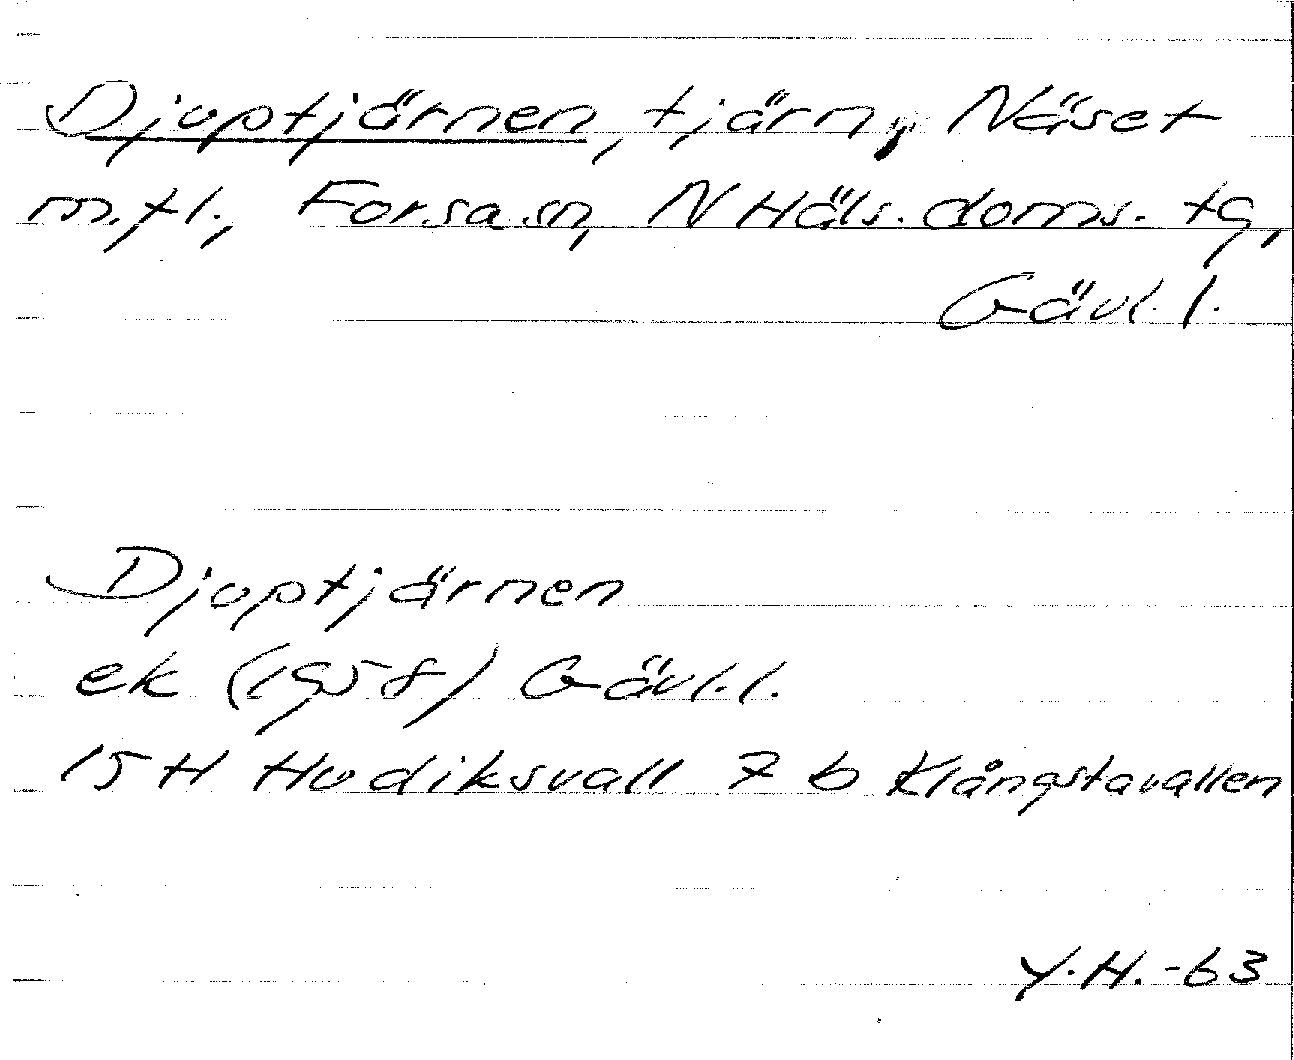 Djuptjärnen, tjärn, Näset
m.fl., Forsa sn, N Häls. doms. tg,
Gävl. l.
Djuptjärnen
ek (1958) Gävl. l.
15 H Hudiksvall 7 b Klångstavallen
Y.H. -63